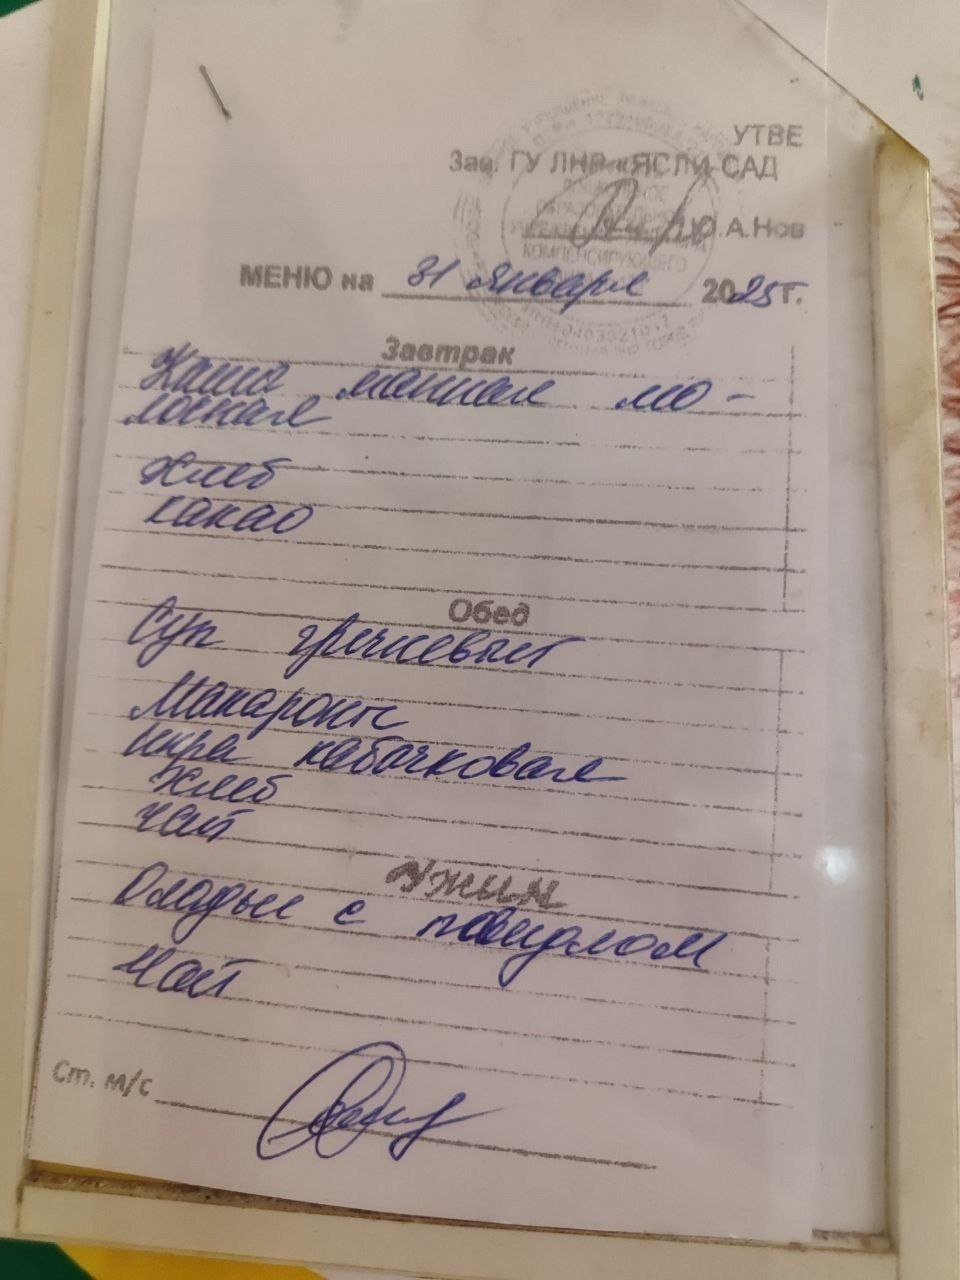 УТВЕ
Зав. ГУ ЛНР «ЯСЛИ-САД
Ю.А.Нов
МЕНЮ на 31 января 2025 г.
Завтрак
Каша манная мо-
лочная
Хлеб
какао
Обед
Суп гречневый
Макароны
икра кабачковая
Хлеб
чай
Ужин
Оладьи с повидлом
Чай
Ст. м/с